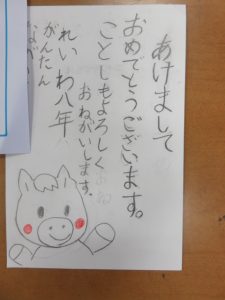 あけまして
おめでとうございます。
ことしもよろしく
おねがいします。
れいわ八年
がんたん